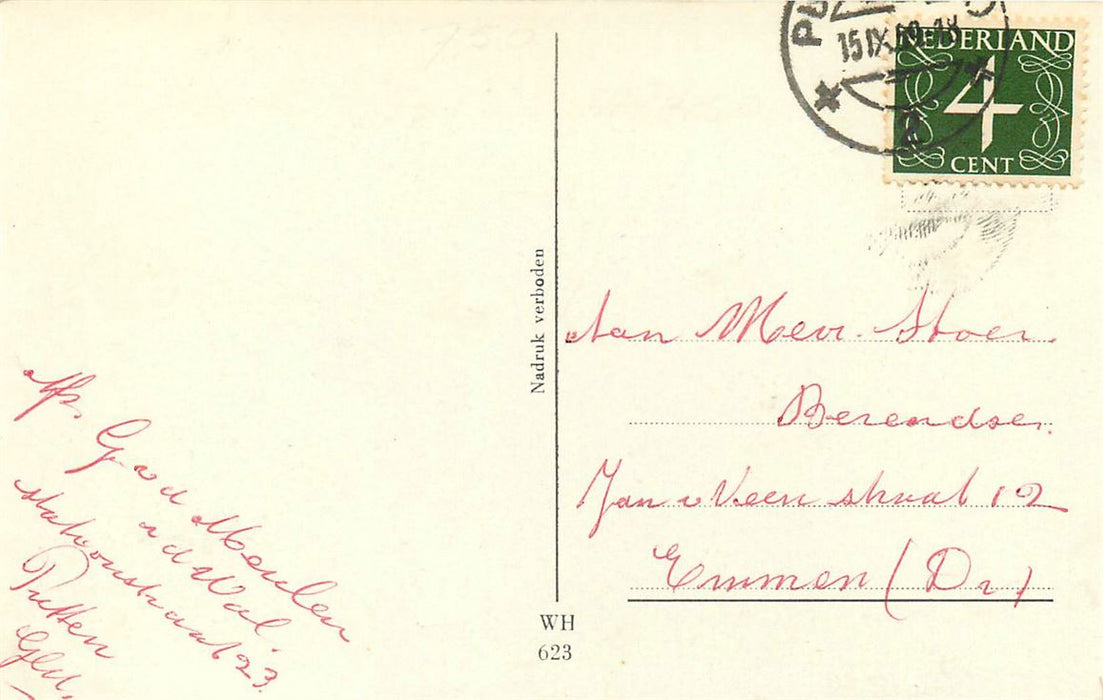 15 IX
2
NEDERLAND
4
CENT
Nadruk verboden
Aan Mevr. Stoer.
Berendsen.
Jan v Veen straat 12
Emmen (Dr)
Afs. G v d Meulen
v d Wal
Stationstraat 23.
Putten
Gld.
WH
623